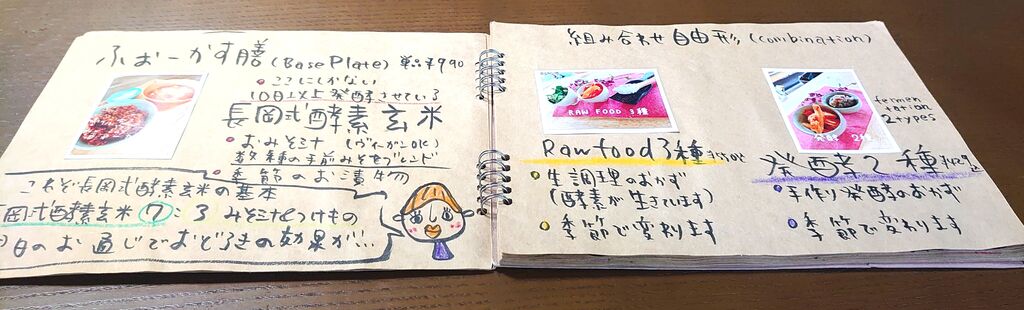 ふぉーかす膳 (Base Plate) 単品¥990
ここにしかない
10日以上発酵させている
長岡式酵素玄米
おみそ汁 (ヴィーガンOK)
数種の手前みそをブレンド
季節のお漬物
これぞ長岡式酵素玄米の基本
岡式酵素玄米⑦:3 みそ汁とつけもの
日のお通じでおどろきの効果が…
組み合わせ自由形 (combination)
RAW FOOD 3種
Rawfood3種
生調理のおかず
(酵素が生きています)
季節で変わります
fermen
tation
2types
発酵2種
手作り発酵のおかず
季節で変わります